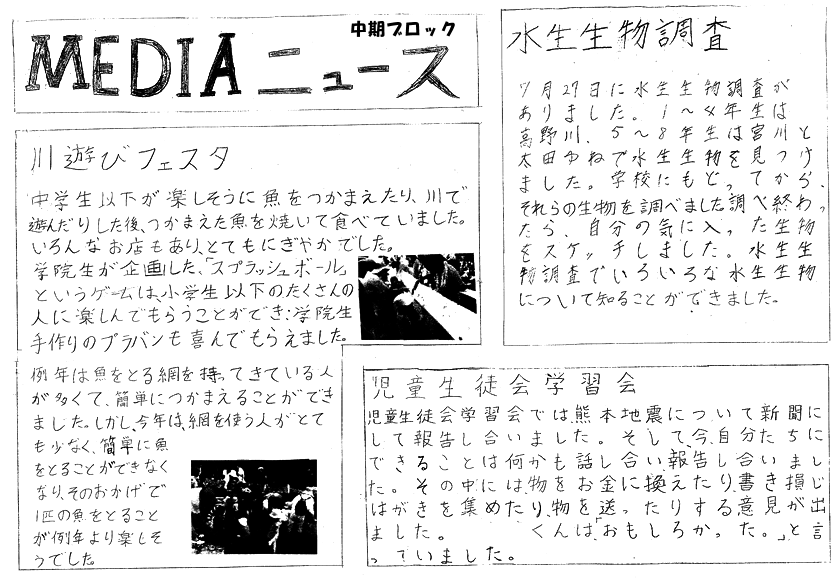 中期ブロック
MEDIAニュース
川遊びフェスタ
中学生以下が楽しそうに魚をつかまえたり、川で
遊んだりした後、つかまえた魚を焼いて食べていました。
いろんなお店もあり、とてもにぎやかでした。
学院生が企画した、「スプラッシュボール」
というゲームは、小学生以下のたくさんの
人に楽しんでもらうことができ、学院生
手作りのプラバンも喜んでもらえました。
例年は魚をとる網を持ってきている人
が多くて、簡単につかまえることができ
ました。しかし、今年は、網を使う人がとて
も少なく、簡単に魚
をとることができなく
なり、そのおかげで
1匹の魚をとること
が例年より楽しそ
うでした。
水生生物調査
7月27日に水生生物調査が
ありました。1〜4年生は
高野川、5〜8年生は宮川と
太田ゆねで水生生物を見つけ
ました。学校にもどってから、
それらの生物を調べました。調べ終わっ
たら、自分の気に入った生物
をスケッチしました。水生生
物調査でいろいろな水生生物
について知ることができました。
児童生徒会学習会
児童生徒会学習会では、熊本地震について新聞に
して報告し合いました。そして、今、自分たちに
できることは何かも話し合い報告し合いまし
た。その中には、物をお金に換えたり、書き損じ
はがきを集めたり、物を送ったりする意見が出
ました。 くんは、「おもしろかった。」と言
っていました。